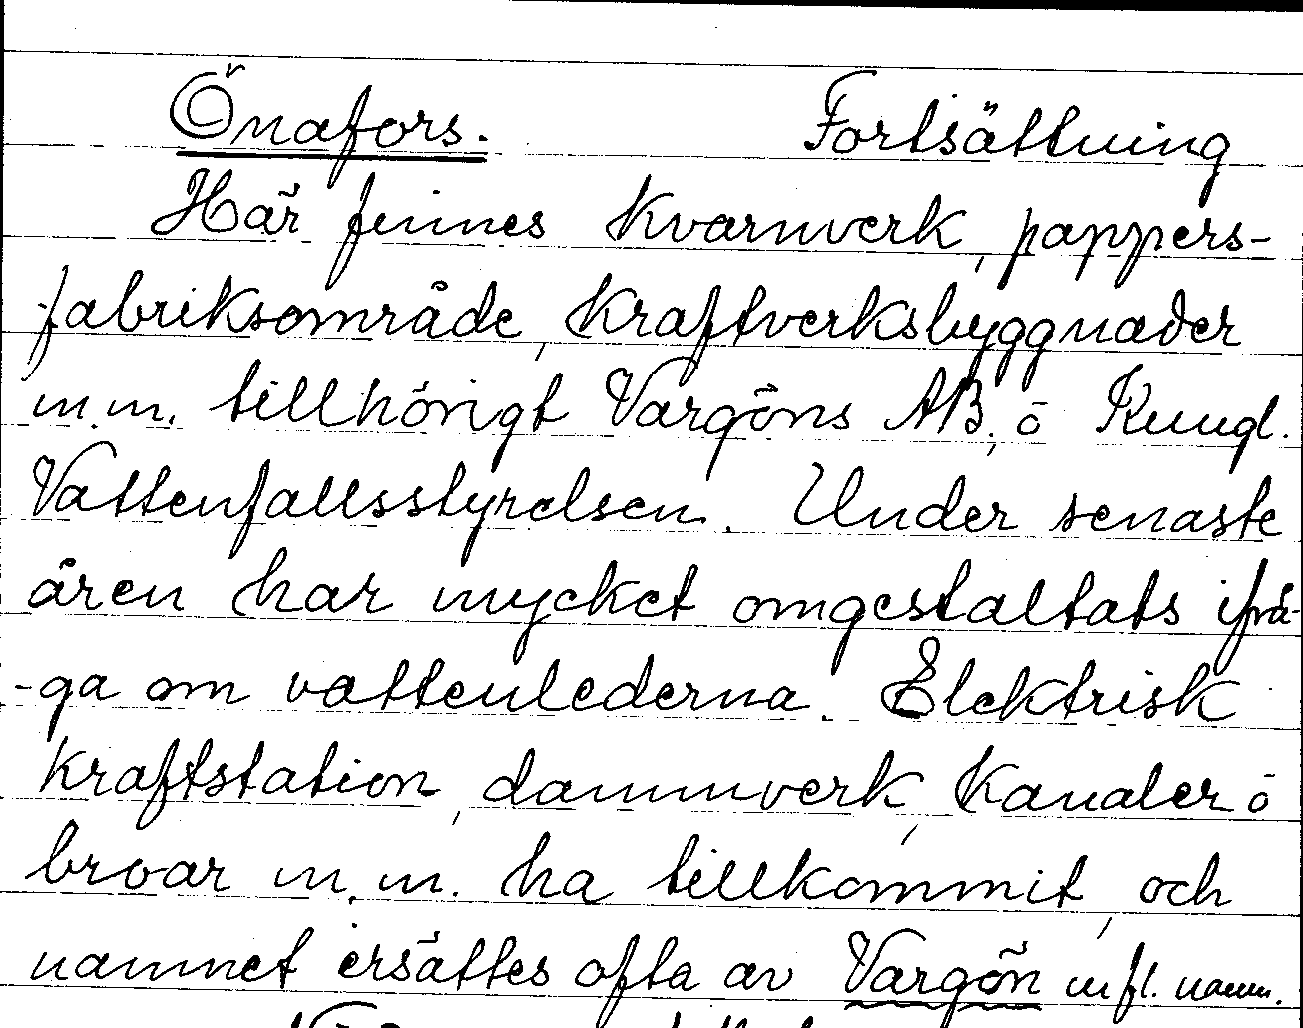 Önafors. Fortsättning
Här finnes kvarnverk, pappers-
-fabriksområde, kraftverksbyggnader
m.m. tillhörigt Vargöns AB, ö Kungl.
Vattenfallsstyrelsen. Under senaste
åren har mycket omgestaltats ifrå-
-ga om vattenlederna. Elektrisk
kraftstation, dammverk, kanaler ö
broar m.m. ha tillkommit, och
namnet ersättes ofta av Vargön m fl. namn.